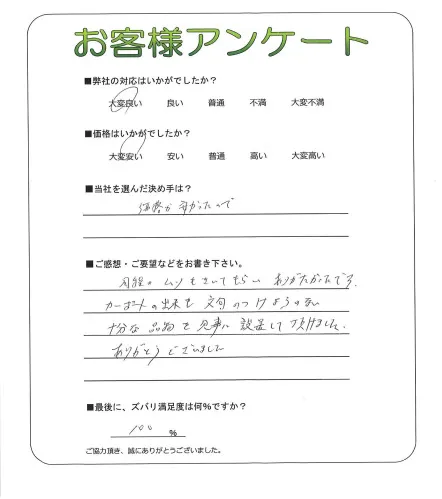 お客様アンケート
■弊社の対応はいかがでしたか？
大変良い 良い 普通 不満 大変不満
■価格はいかがでしたか？
大変安い 安い 普通 高い 大変高い
■当社を選んだ決め手は？
価格が安かったので
■ご感想・ご要望などをお書き下さい。
日程の ムリもきいてもらい ありがたかったです。
カーポートの出来も 文句のつけようのない
十分な 品物を 見事に 設置して 頂けました。
ありがとう ございました
■最後に、ズバリ満足度は何％ですか？
100 ％
ご協力頂き、誠にありがとうございました。